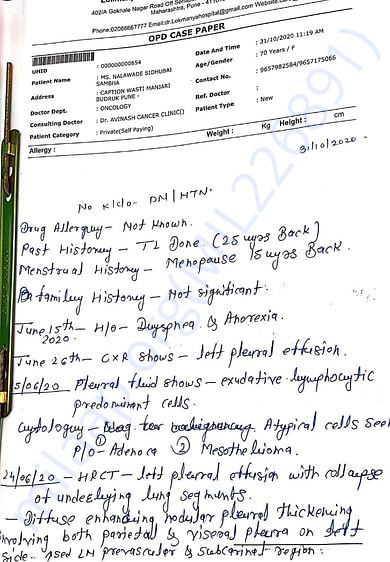 402/A Gokhale Nagar Road Off Sen
Maharashtra, Pune - 4110
Phone:02066667777 Email:dr.Lokmanyahospital@gmail.com Website:
OPD CASE PAPER
UHID : 000000000654
Patient Name : MS. NALAWADE SIDHUBAI SAMBHA
Address : CAPTION WASTI MANJARI BUDRUK PUNE -
Doctor Dept. : ONCOLOGY
Consulting Doctor : Dr. AVINASH CANCER CLINIC()
Patient Category : Private(Self Paying)
Date And Time : 31/10/2020 11:19 AM
Age/Gender : 70 Years / F
Contact No. : 9657982584/9657175066
Ref. Doctor :
Patient Type : New
Allergy :
Weight : Kg Height : cm
31/10/2020 -
No K/c/o- DM/HTN.
Drug Allerguy - Not Known.
Past Historey - TL Done. (25 uyrs Back)
Menstrual Historey - Menopause 15 uyrs Back.
familey Historey - Not significant.
June 15th 2020 - H/o - Duyspnea & Anorexia.
June 26th - CXR shows - left pleural effusion.
5/06/20 Pleural fluid shows - exudative lymphocytic
predominant cells.
Cytologuy - Atypical cells see
P/O - ① Adenoca ② Mesothelioma.
24/06/20 - HRCT - left pleural effusion with collapse
of underlying lung segments.
- Diffuse enhancing nodular pleural thickening
involving both parietal & viseral pleura on left
side. ↑sed LN prevascular & subcarinal region:
milaap.org/MIL226891